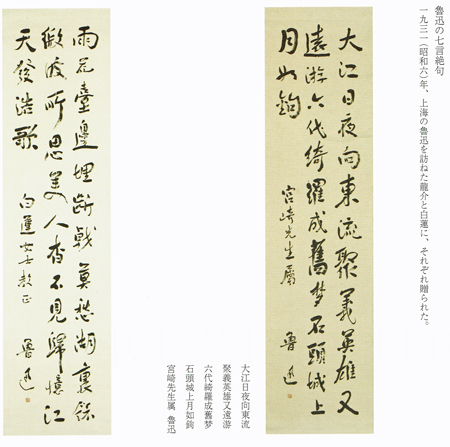 魯迅の七言絶句
一九三一(昭和六)年、上海の魯迅を訪ねた龍介と白蓮に、それぞれ贈られた。
大江日夜向東流聚義英雄又
遠游六代綺羅成舊梦石頭城上
月如鉤
宮崎先生屬 魯迅
大江日夜向東流
聚義英雄又遠游
六代綺羅成舊梦
石頭城上月如鉤
宮崎先生属 魯迅
雨花臺邊埋斷戟莫愁湖裏餘
微波所思美人杳不見歸憶江
天發浩歌
白蓮女士教正 魯迅